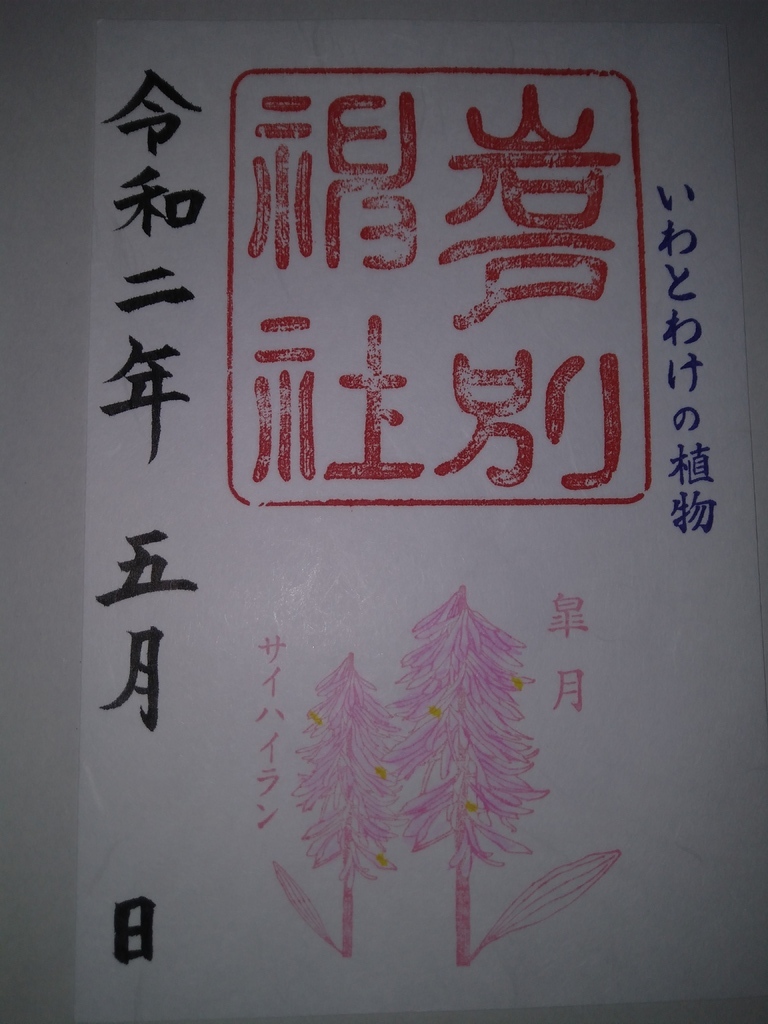 いわとわけの植物
岩戸別
神社
皐月
サイハイラン
令和二年 五月 日